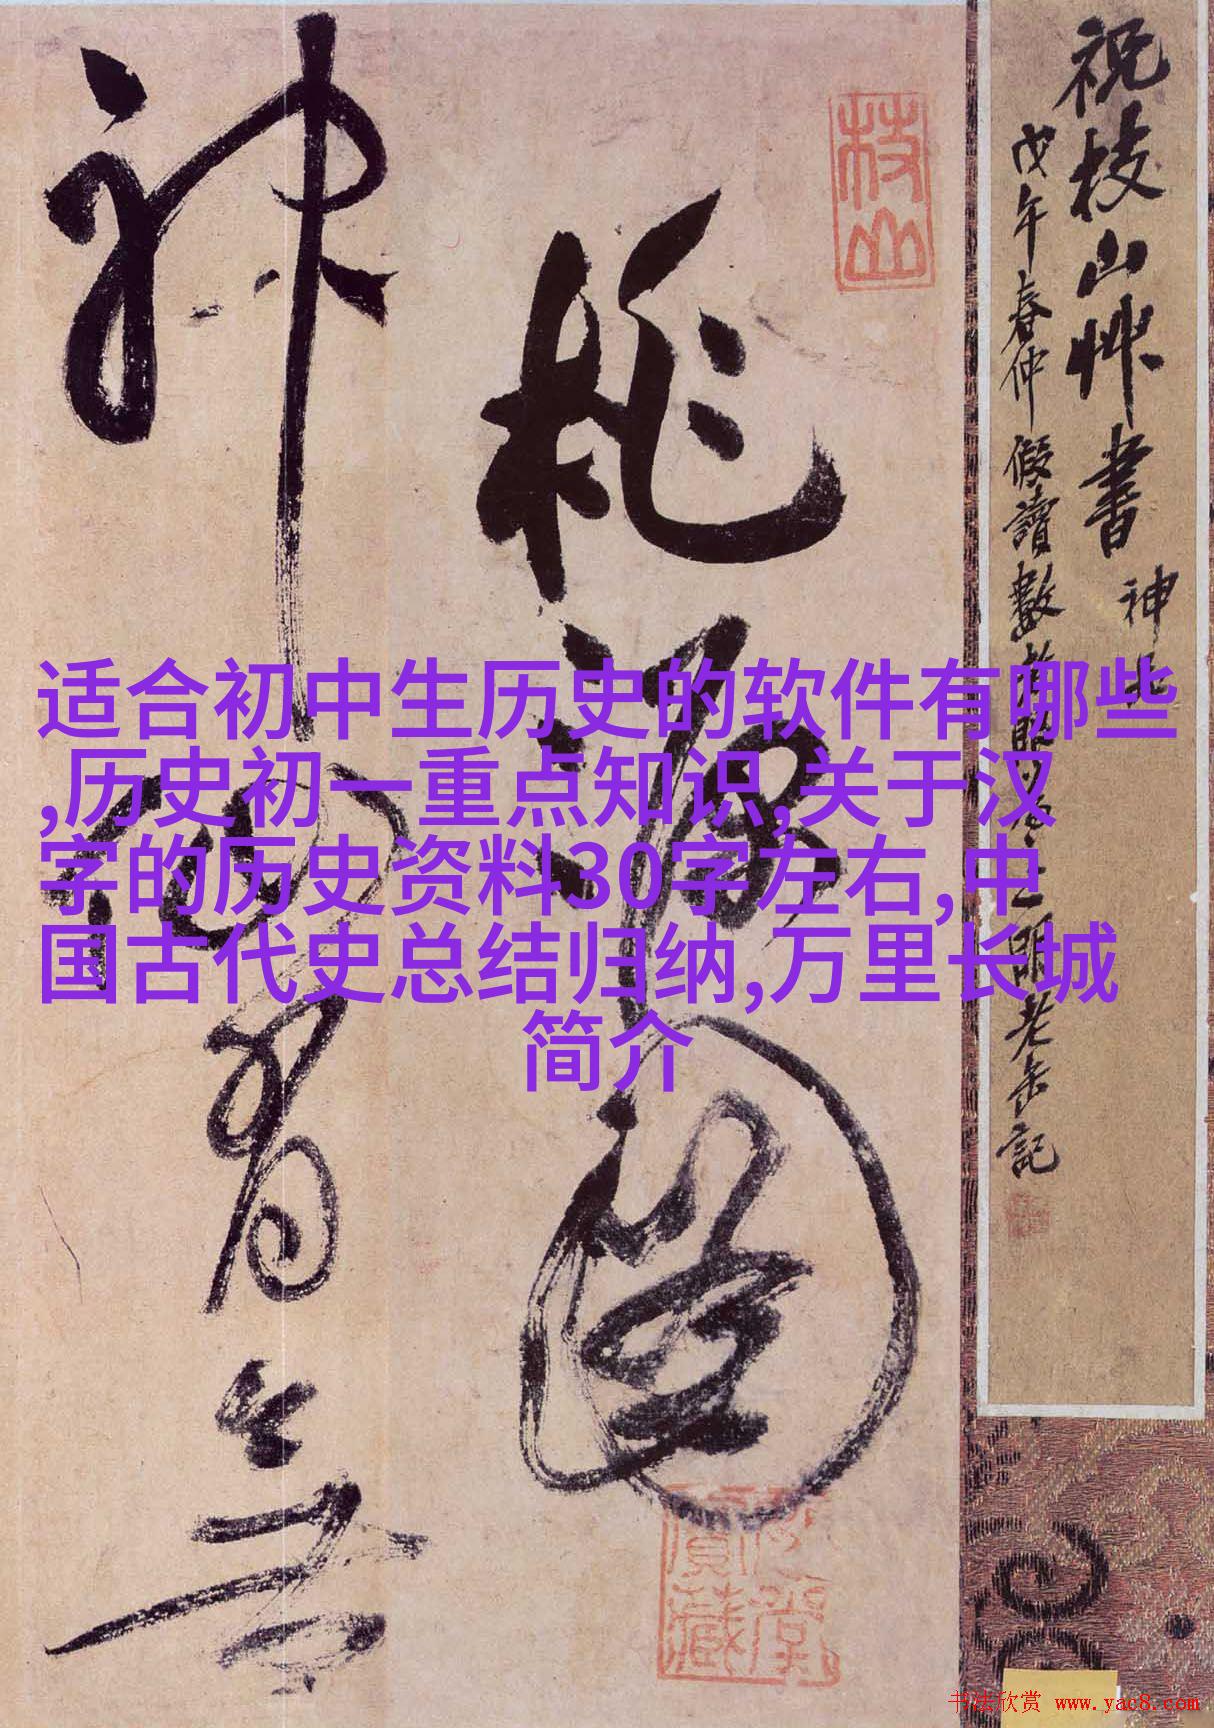 祝枝山艸書 神品
戊午春仲假讀數
老缶記
枝山
桃源圖
神仙有無
適合初中生历史的软件有哪些
,历史初一重点知识,关于汉
字的历史资料30字左右,中
国古代史总结归纳,万里长城
简介
书法欣赏 www.yac8.com